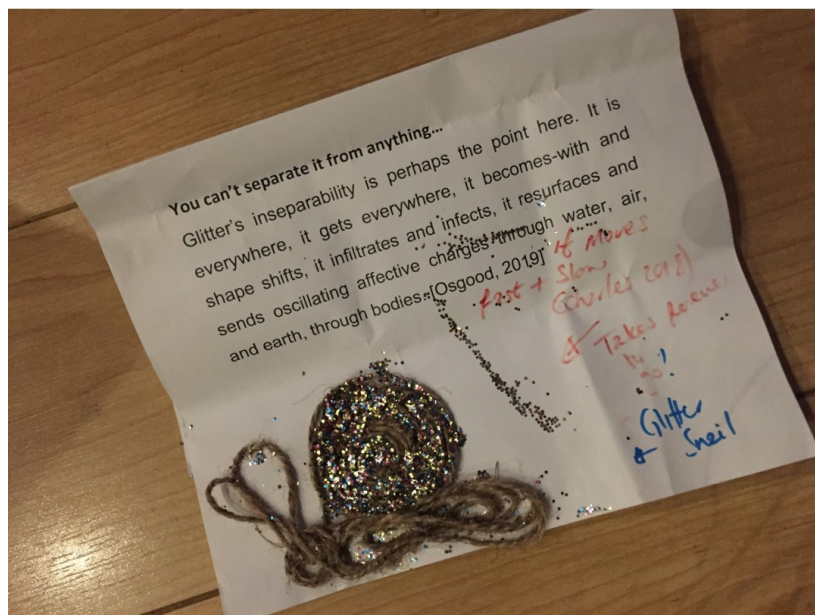 You can't separate it from anything...
Glitter's inseparability is perhaps the point here. It is
everywhere, it gets everywhere, it becomes-with and
shape shifts, it infiltrates and infects, it resurfaces and
sends oscillating affective charges through water, air,
and earth, through bodies. [Osgood, 2019]
it moves
fast + Slow
(Charles 2018)
Takes
to
go!
Glitter
Snail